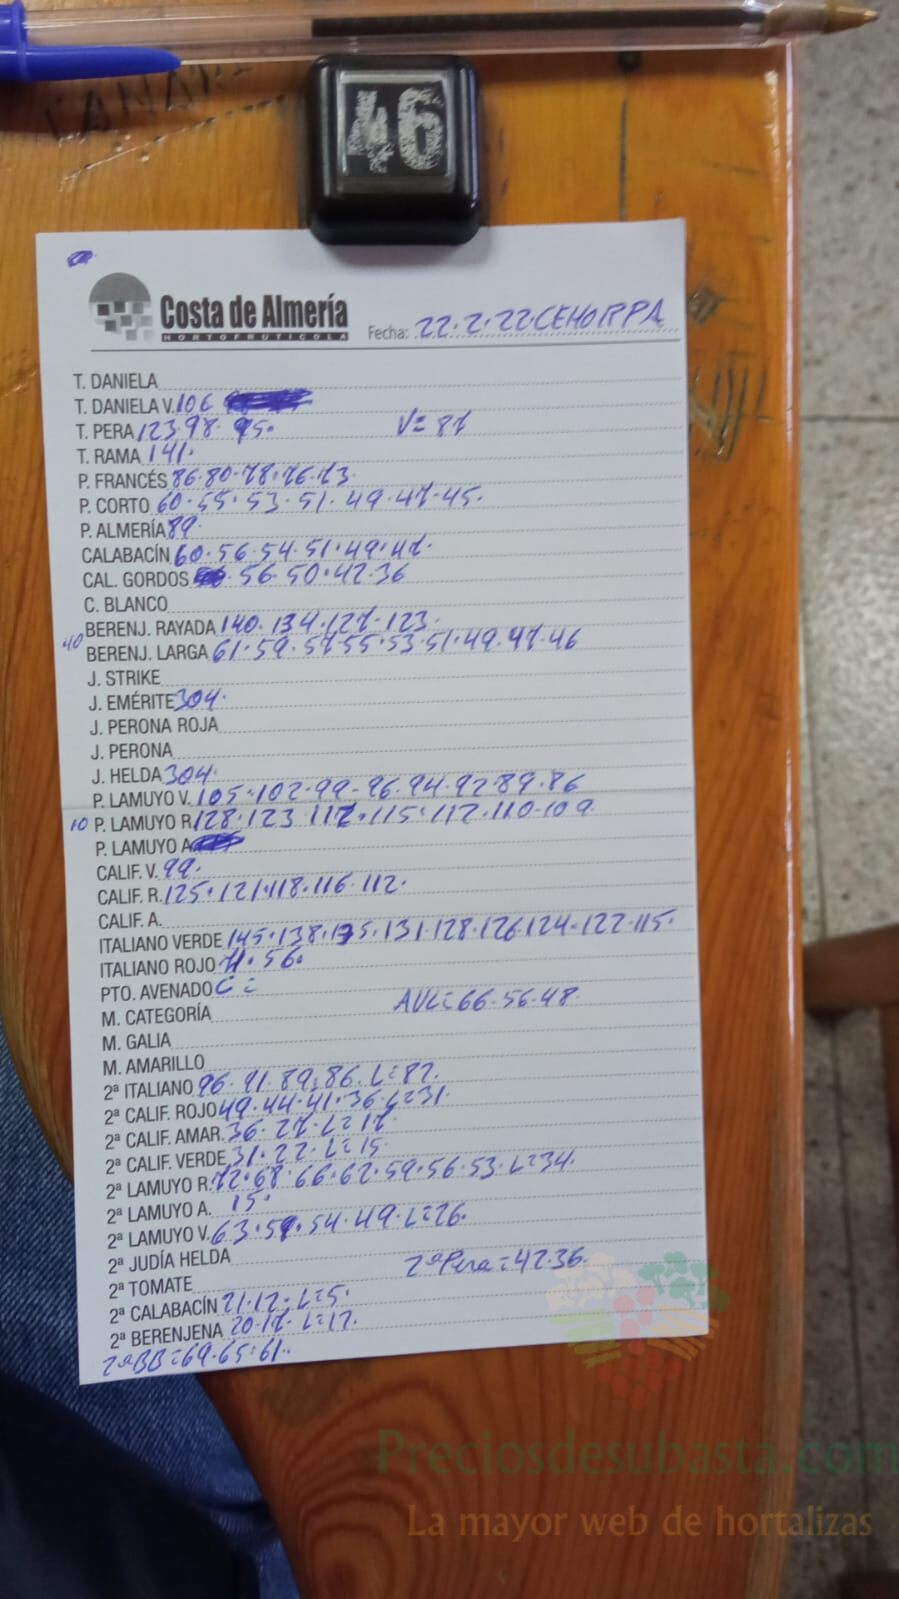 46
Costa de Almería
HORTOFRUTICOLA
Fecha: 22.2.22 CEHORPA
T. DANIELA
T. DANIELA V. 106
T. PERA 123 98. 95. V=87
T. RAMA 141.
P. FRANCÉS 86.80.78.76.73.
P. CORTO 60.55.53.51.49.47.45.
P. ALMERÍA 89.
CALABACÍN 60.56.54.51.49.47.
CAL. GORDOS 56.50.42.36
C. BLANCO
BERENJ. RAYADA 140.134.127.123.
40 BERENJ. LARGA 61.59.57.55.53.51.49.47.46
J. STRIKE
J. EMÉRITE 304.
J. PERONA ROJA
J. PERONA
J. HELDA 304.
P. LAMUYO V. 105.102.99.96.94.92.89.86
10 P. LAMUYO R. 128.123 117.115.112.110.109
P. LAMUYO A
CALIF. V. 99.
CALIF. R. 125.121.118.116.112.
CALIF. A.
ITALIANO VERDE 145.138.135.131.128.126.124.122.115.
ITALIANO ROJO 71.56.
PTO. AVENADO C=
M. CATEGORÍA AVL=66.56.48.
M. GALIA
M. AMARILLO
2ª ITALIANO 96.91.89.86. L=82.
2ª CALIF. ROJO 49.44.41.36. L=31.
2ª CALIF. AMAR. 36.27. L=17.
2ª CALIF. VERDE 31.22. L=15
2ª LAMUYO R. 72.68.66.62.59.56.53. L=34.
2ª LAMUYO A. 15.
2ª LAMUYO V. 63.59.54.49. L=26.
2ª JUDÍA HELDA
2ª Pera=42.36.
2ª TOMATE
2ª CALABACÍN 21.12. L=5.
2ª BERENJENA 20.17. L=12.
2ª BB=69.65.61.
Preciosdesubasta.com
La mayor web de hortalizas